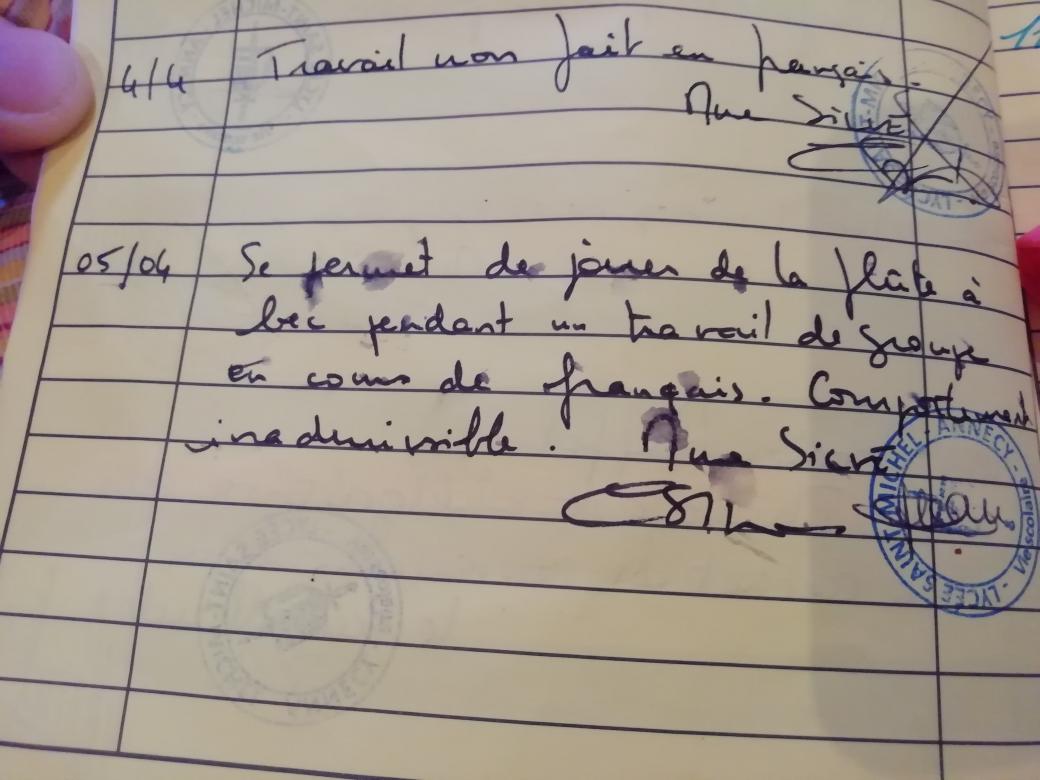 4/4 Travail non fait en français.
Mme Sicre
05/04 Se permet de jouer de la flûte à
bec pendant un travail de groupe
en cours de français. Comportement
inadmissible. Mme Sicre
LYCÉE SAINT MICHEL ANNECY - Vie scolaire